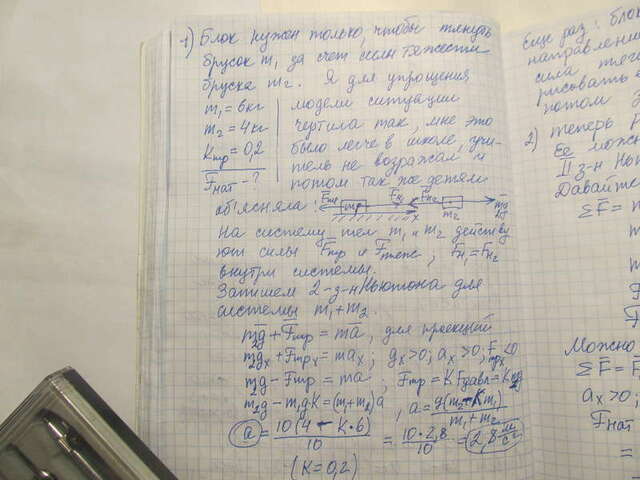 1) Блок нужен только, чтобы тянуть
брусок m₁ за счет силы тяжести
бруска m₂. Я для упрощения
m₁ = 6кг модели ситуации
m₂ = 4кг чертила так, мне это
Kтр = 0,2 было легче в школе, учи-
Fнат - ? тель не возражал и
потом так же детям
объясняла: Fтр m₁ Fн₁ Fн₂ m₂ m₂g
На систему тел m₁ и m₂ действу
ют силы Fтр и Fтяж, Fн₁ = Fн₂
внутри системы.
Запишем 2-з-н Ньютона для
системы m₁ + m₂.
m₂g + Fтр = ma, для проекций
m₂gx + Fтрx = max; gx>0; ax>0; Fтрx<0
m₂g - Fтр = ma, Fтр = K Fдавл = K m₁g
m₂g - m₁g·K = (m₁+m₂)a, a = g(m₂ - Km₁) / m₁ + m₂
a = 10(4 - K·6) / 10 = 10·2,8 / 10 = 2,8 м/с²
(K = 0,2)
Еще раз: блок
направлени
сила тяги
рисовать
потом
2) теперь
Ее можн
II з-н Нью
Давайте
ΣF = m
Можно
ΣF = F
ax > 0;
Fнат
=